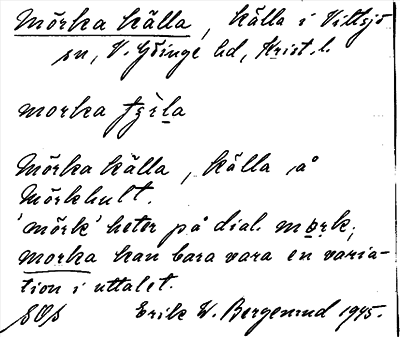 Mörka källa, källa i Vittsjö
sn, V. Göinge hd, Krist. l.
morka
Mörka källa, källa på
Mörkhult.
'mörk' heter på dial. mörk;
morka kan bara vara en varia-
tion i uttalet.
Erik W. Bergenrud 1945.